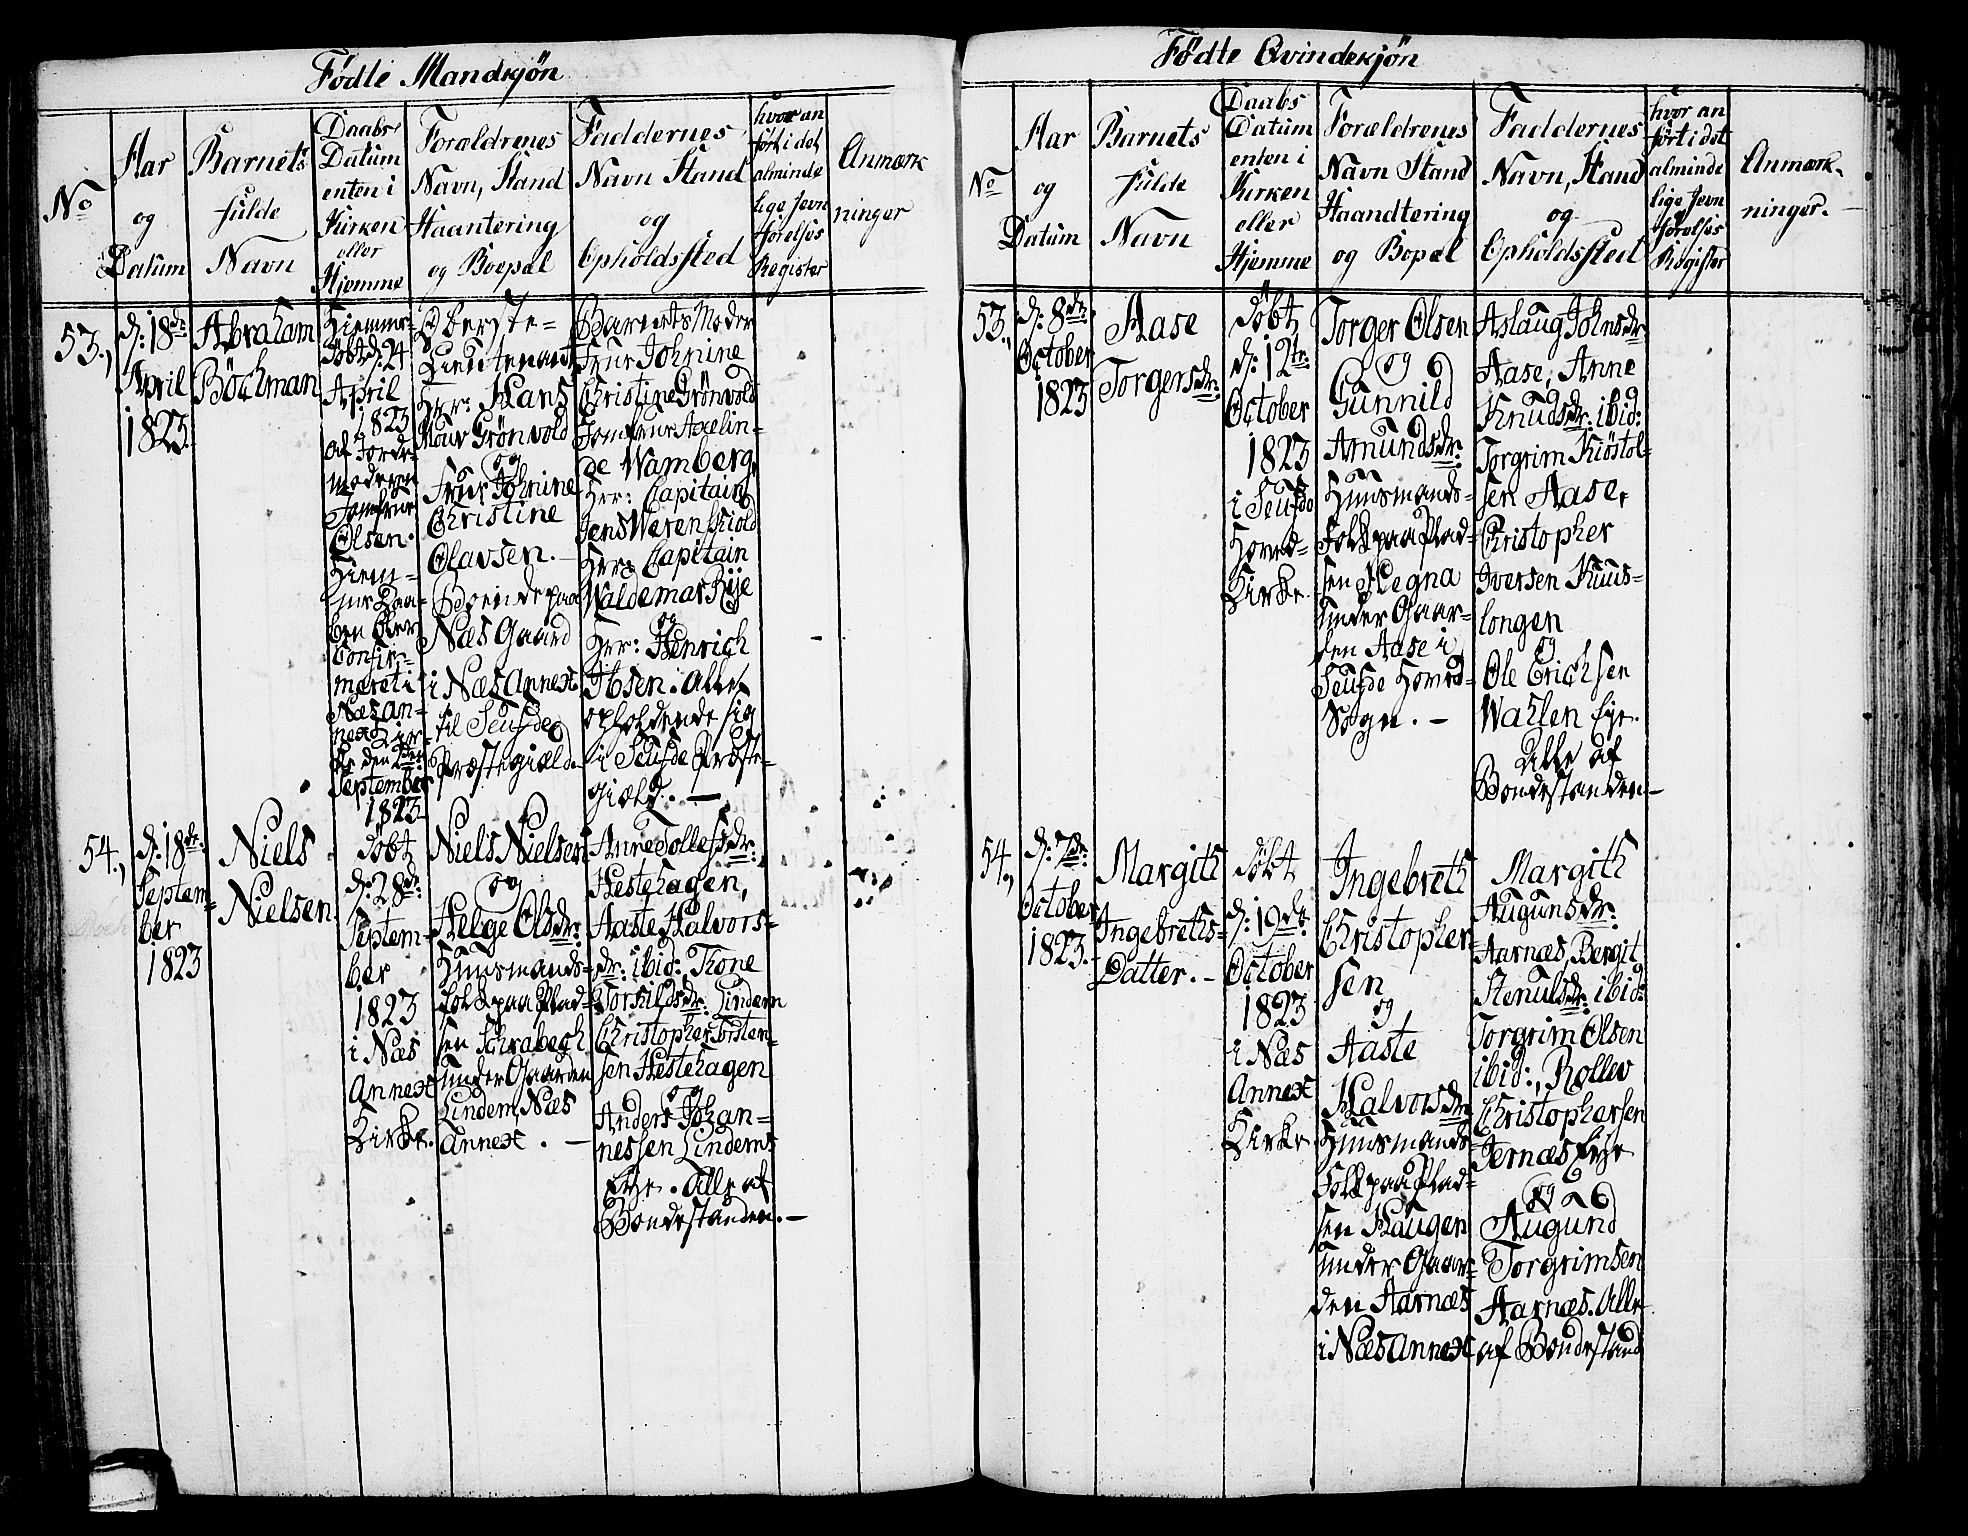 Födte Mandkjön
No
Aar
og
Datum
Barnets
fulde
Navn
Daabs
Datum
enten i
Kirken
eller
Hjemme
Forældrenes
Navn, Stand
Haantering
og Boepæl
Faddernes
Navn Stand
og
Opholdssted
hvor an
fört i det
alminde
lige Jevn
förelses
Register
Anmærk
ninger
53.,
d: 18de
April
1823.
Abraham
Böckman
Hjemme-
döbt d: 24
April
1823
af Jorde-
moderen
Jomfrue
Olsen.
Hjem-
me Daa-
ben blev
Confir-
meret i
Næs An-
nex Kir-
ke den 2den
September
1823
Oberste-
Lieutenant
Herr: Hans
Grönvold
og
Frue Johnine
Christine
Olavsen. —
Boende paa
Næs Gaard
i Næs Annex
til Seufde
Præstegield.
Barnets Moder
Frue Johnine
Christine Grönvold
Jomfrue Axelin-
de Wamberg,
Herr: Capitain
Jens Werenskiold
Herr: Capitain
Waldemar Rye
og
Herr: Henrich
Ibsen. Alle
opholdende sig
i Seufde Præste-
gield. —
54.,
d: 18de
Septem-
ber
1823
Niels
Nielsen
döbt
d: 28de
Septem-
ber
1823
i Næs
Annex
Kirke.
Niels Nielsen
og
Helge Olsdr:
Huusmands-
folk paa Plad-
sen Schrabegh
under Gaarden
Lindem, Næs
Annex. —
Anne Tollefsdr:
Hestehagen,
Aaste Halvors-
dr: ibid: Tone
Torkildsdr: Lindem
Christopher Torsten-
sen Hestehagen
og
Anders Johan-
nessen Lindems
Eye. Alle af
Bondestanden. —
Födte Qvindekjön
No
Aar
og
Datum
Barnets
fulde
Navn
Daabs
Datum
enten i
Kirken
eller
Hjemme
Forældrenes
Navn Stand
Haandtering
og Bopæl
Faddernes
Navn, Stand
og
Opholdssted
hvor an
fört i det
alminde
lige Jevn
förelses
Register
Anmærk-
ninger.
53.,
d: 8de
October
1823
Aase
Torgersdr:
döbt
d: 12te
October
1823
i Seufde
Hoved-
Kirke.
Torger Olsen
og
Gunnild
Amundsdr:
Huusmands-
Folk paa Plad-
sen Hegna
under Gaar-
den Aase i
Seufde Hoved-
Sogn. —
Aslaug Johnsdr
Aase, Anne
Knudsdr: ibid:
Torgrim Kiöstol-
sen Aase,
Christopher
Iversen Kuus-
longen
og
Ole Erichsen
Wahlen Eye.
Alle af
Bondestanden. —
54.,
d: 7de
October
1823.
Margith
Ingebreths-
Datter. —
döbt
d: 19de
October
1823
i Næs
Annex
Kirke
Ingebreth
Christopher-
sen
og
Aaste
Halvorsdr
Huusmands-
Folk paa Plad-
sen Haugen
under Gaar-
den Aarnæs
i Næs Annex
Margith
Augunsdr:
Aarnæs, Bergit
Stenulsdr: ibid:
Torgrim Olsen
ibid:, Rollev
Christophersen
Jernæs Eye
og
Augund
Torgrimsen
Aarnæs. Alle
af Bondestand